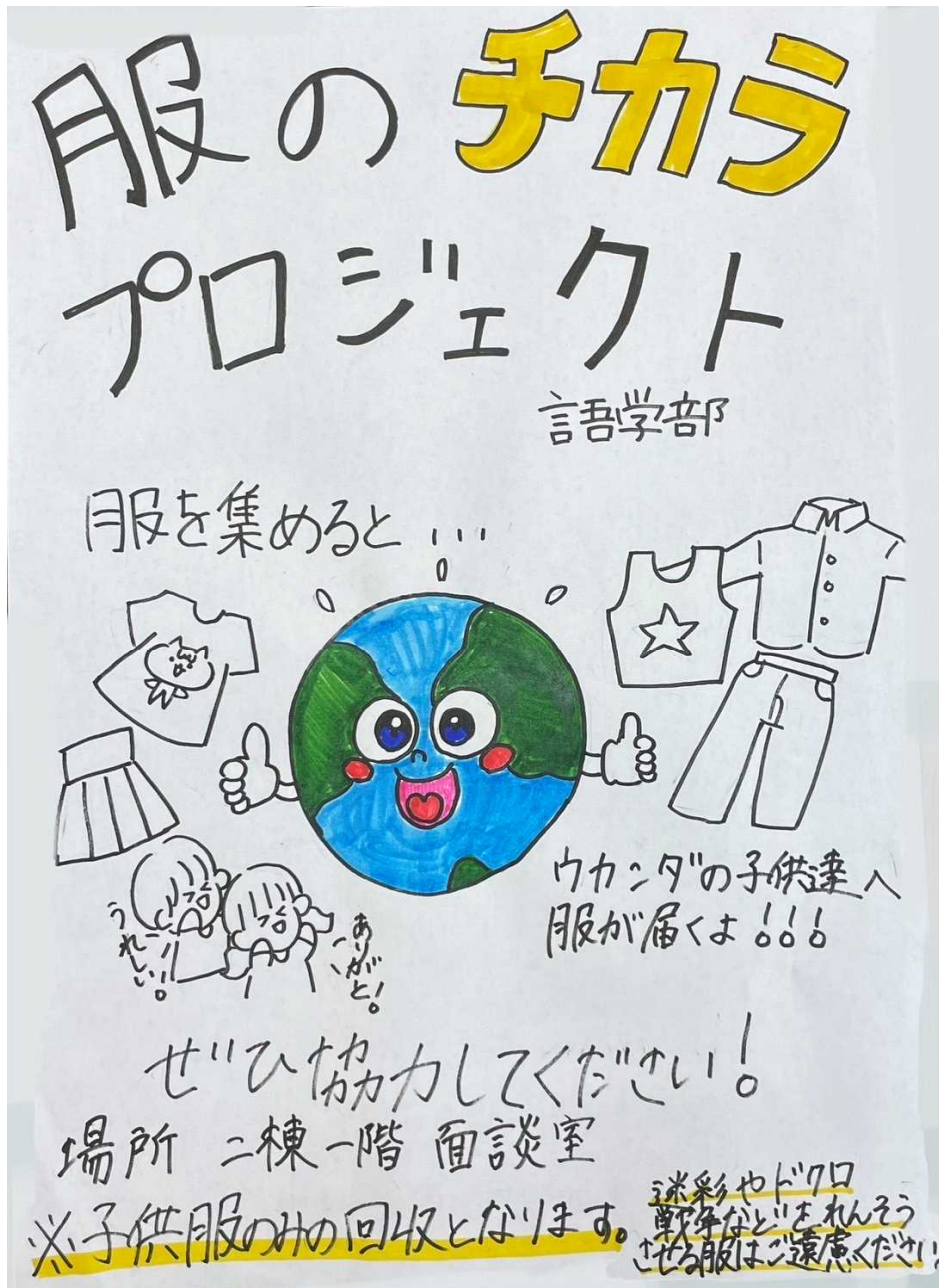 服のチカラ
プロジェクト
言吾学部
服を集めると...
うれしい!
ありがと!
ウカンダの子供達へ
服が届くよ!!!
ぜひ協力してください!
場所 二棟一階 面談室
※子供服のみの回収となります。
迷彩やドクロ
戦争などをれんそう
させる服はご遠慮ください!